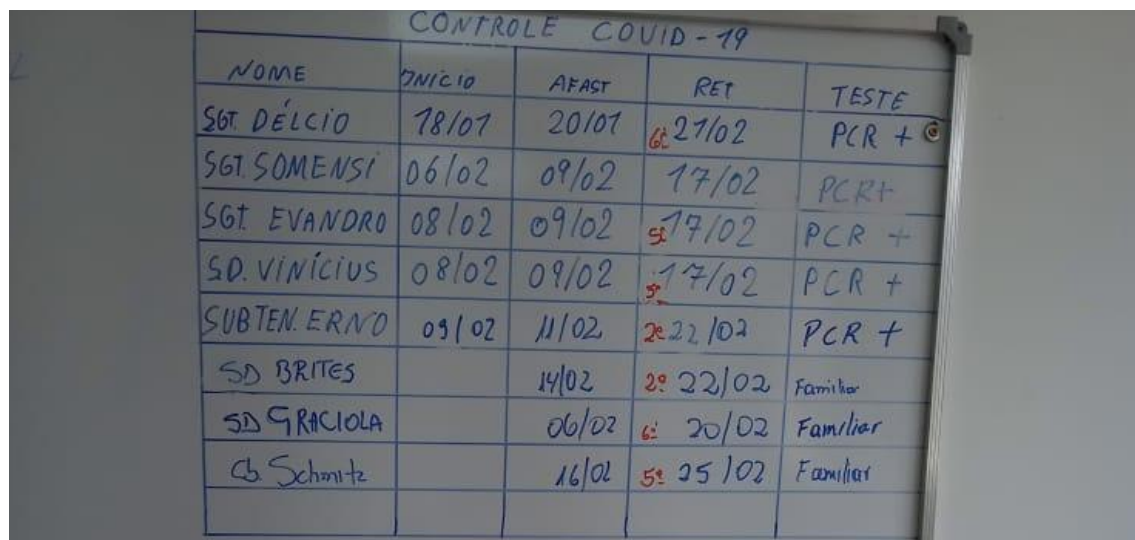 CONTROLE COVID-19
NOME INÍCIO AFAST RET TESTE
SGT. DÉLCIO 18/01 20/01 6ª 21/02 PCR +
SGT. SOMENSI 06/02 09/02 17/02 PCR+
SGT. EVANDRO 08/02 09/02 5ª 17/02 PCR +
SD. VINÍCIUS 08/02 09/02 5ª 17/02 PCR +
SUBTEN. ERNO 09/02 11/02 2ª 22/02 PCR +
SD BRITES 14/02 2ª 22/02 Familiar
SD GRACIOLA 06/02 6ª 20/02 Familiar
Cb. Schmitz 16/02 5ª 25/02 Familiar